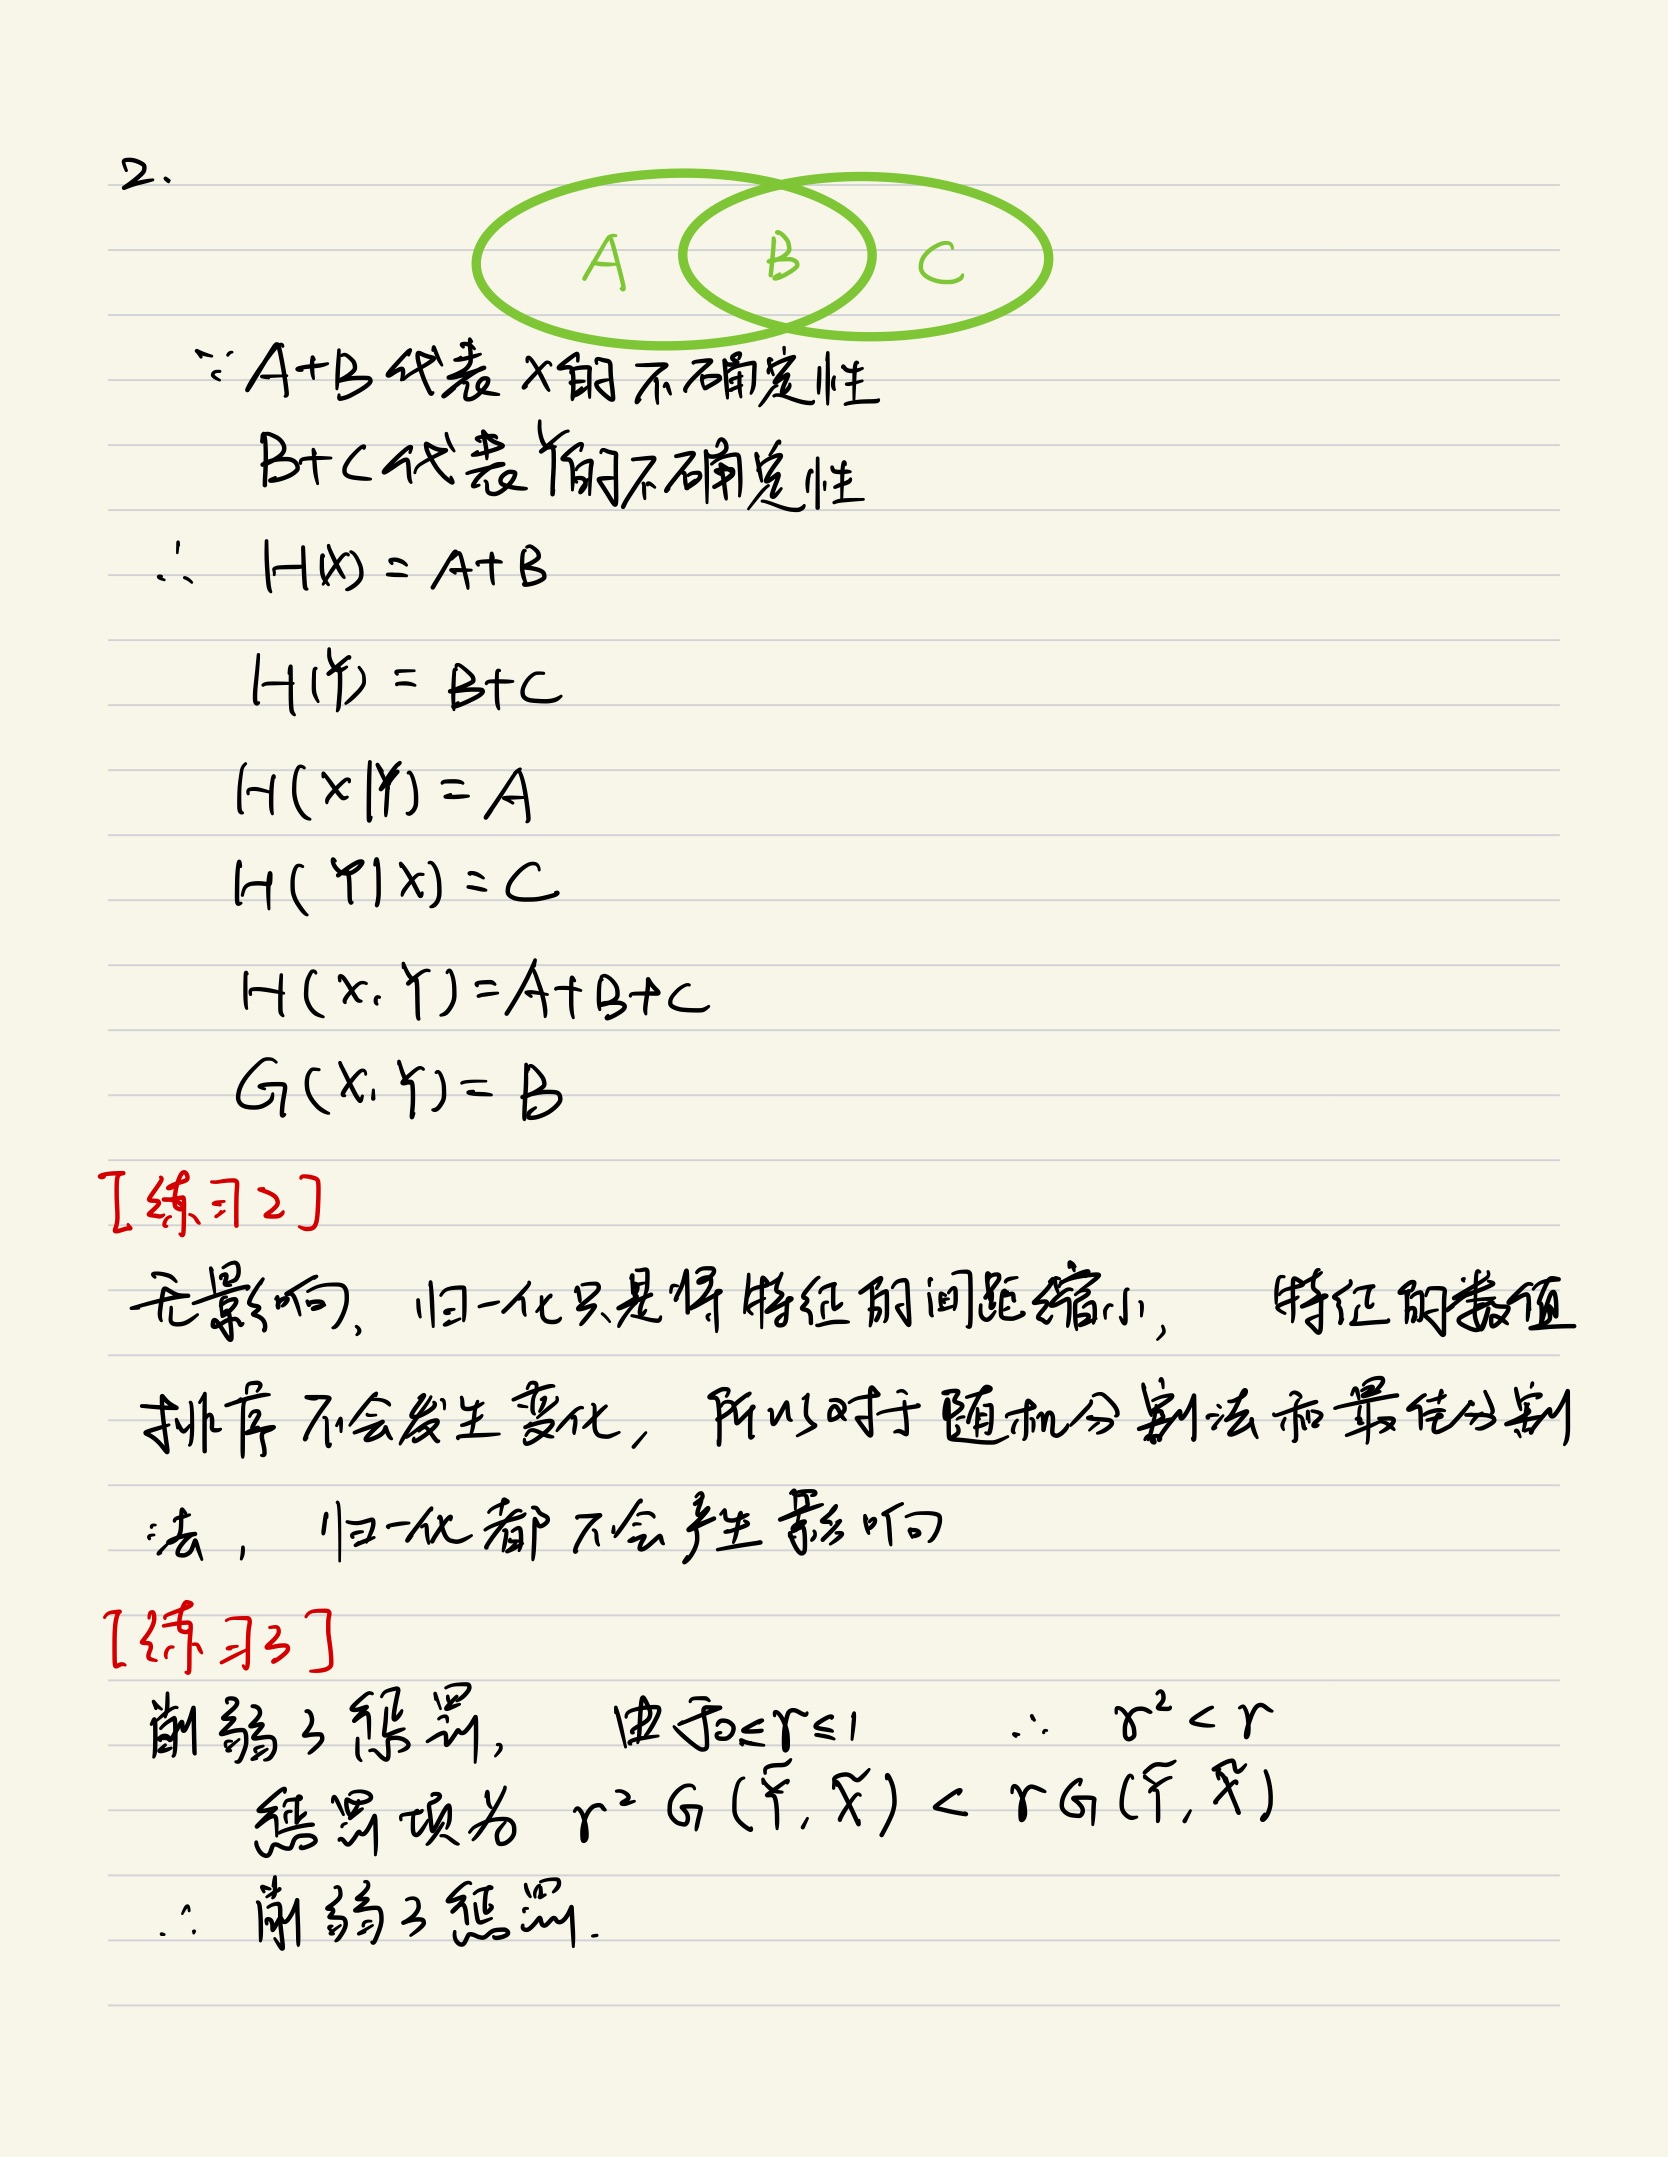 2.
A B C
∵ A+B代表X的不确定性
B+C代表Y的不确定性
∴ H(X) = A+B
H(Y) = B+C
H(X|Y) = A
H(Y|X) = C
H(X,Y) = A+B+C
G(X,Y) = B
[练习2]
无影响,归一化只是将特征的间距缩小, 特征的数值
排序不会发生变化,所以对于随机分割法和最佳分割
法,归一化都不会产生影响
[练习3]
削弱了惩罚, 由于0≤γ≤1 ∴ γ² < γ
惩罚项为 γ² G(Ỹ, X̃) < γG(Ỹ, X̃)
∴ 削弱了惩罚.